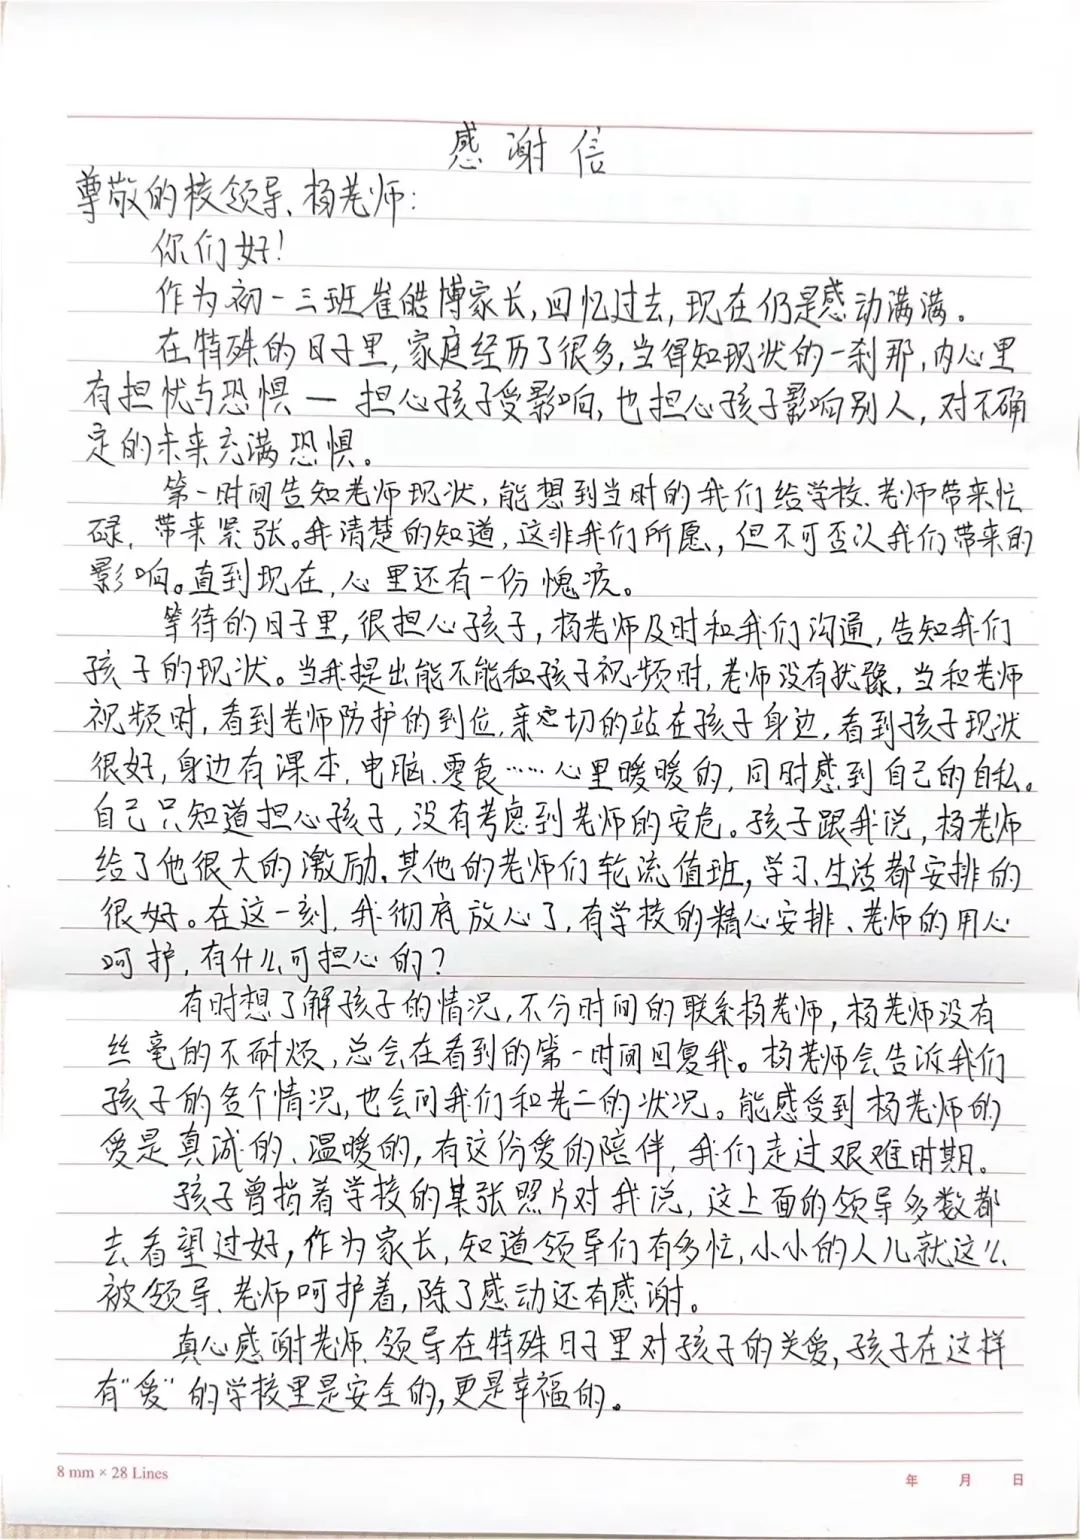 感谢信
尊敬的校领导、杨老师:
你们好!
作为初一三班崔皓博家长,回忆过去,现在仍是感动满满。
在特殊的日子里,家庭经历了很多,当得知现状的一刹那,内心里
有担忧与恐惧一担心孩子受影响,也担心孩子影响别人,对不确
定的未来充满恐惧。
第一时间告知老师现状,能想到当时的我们给学校、老师带来忙
碌,带来紧张。我清楚的知道,这非我们所愿,但不可否认我们带来的
影响。直到现在,心里还有一份愧疚。
等待的日子里,很担心孩子,杨老师及时和我们沟通,告知我们
孩子的现状。当我提出能不能和孩子视频时,老师没有犹豫,当和老师
视频时,看到老师防护的到位,亲切的站在孩子身边,看到孩子现状
很好,身边有课本、电脑、零食……心里暖暖的,同时感到自己的自私。
自己只知道担心孩子,没有考虑到老师的安危。孩子跟我说,杨老师
给了他很大的激励,其他的老师们轮流值班,学习、生活都安排的
很好。在这一刻,我彻底放心了,有学校的精心安排、老师的用心
呵护,有什么可担心的?
有时想了解孩子的情况,不分时间的联系杨老师,杨老师没有
丝毫的不耐烦,总会在看到的第一时间回复我。杨老师会告诉我们
孩子的各个情况,也会问我们和老二的状况。能感受到杨老师的
爱是真诚的、温暖的,有这份爱的陪伴,我们走过艰难时期。
孩子曾指着学校的某张照片对我说,这上面的领导多数都
去看望过好,作为家长,知道领导们有多忙,小小的人儿就这么
被领导、老师呵护着,除了感动还有感谢。
真心感谢老师、领导在特殊日子里对孩子的关爱,孩子在这样
有"爱"的学校里是安全的,更是幸福的。
8 mm × 28 Lines
年 月 日